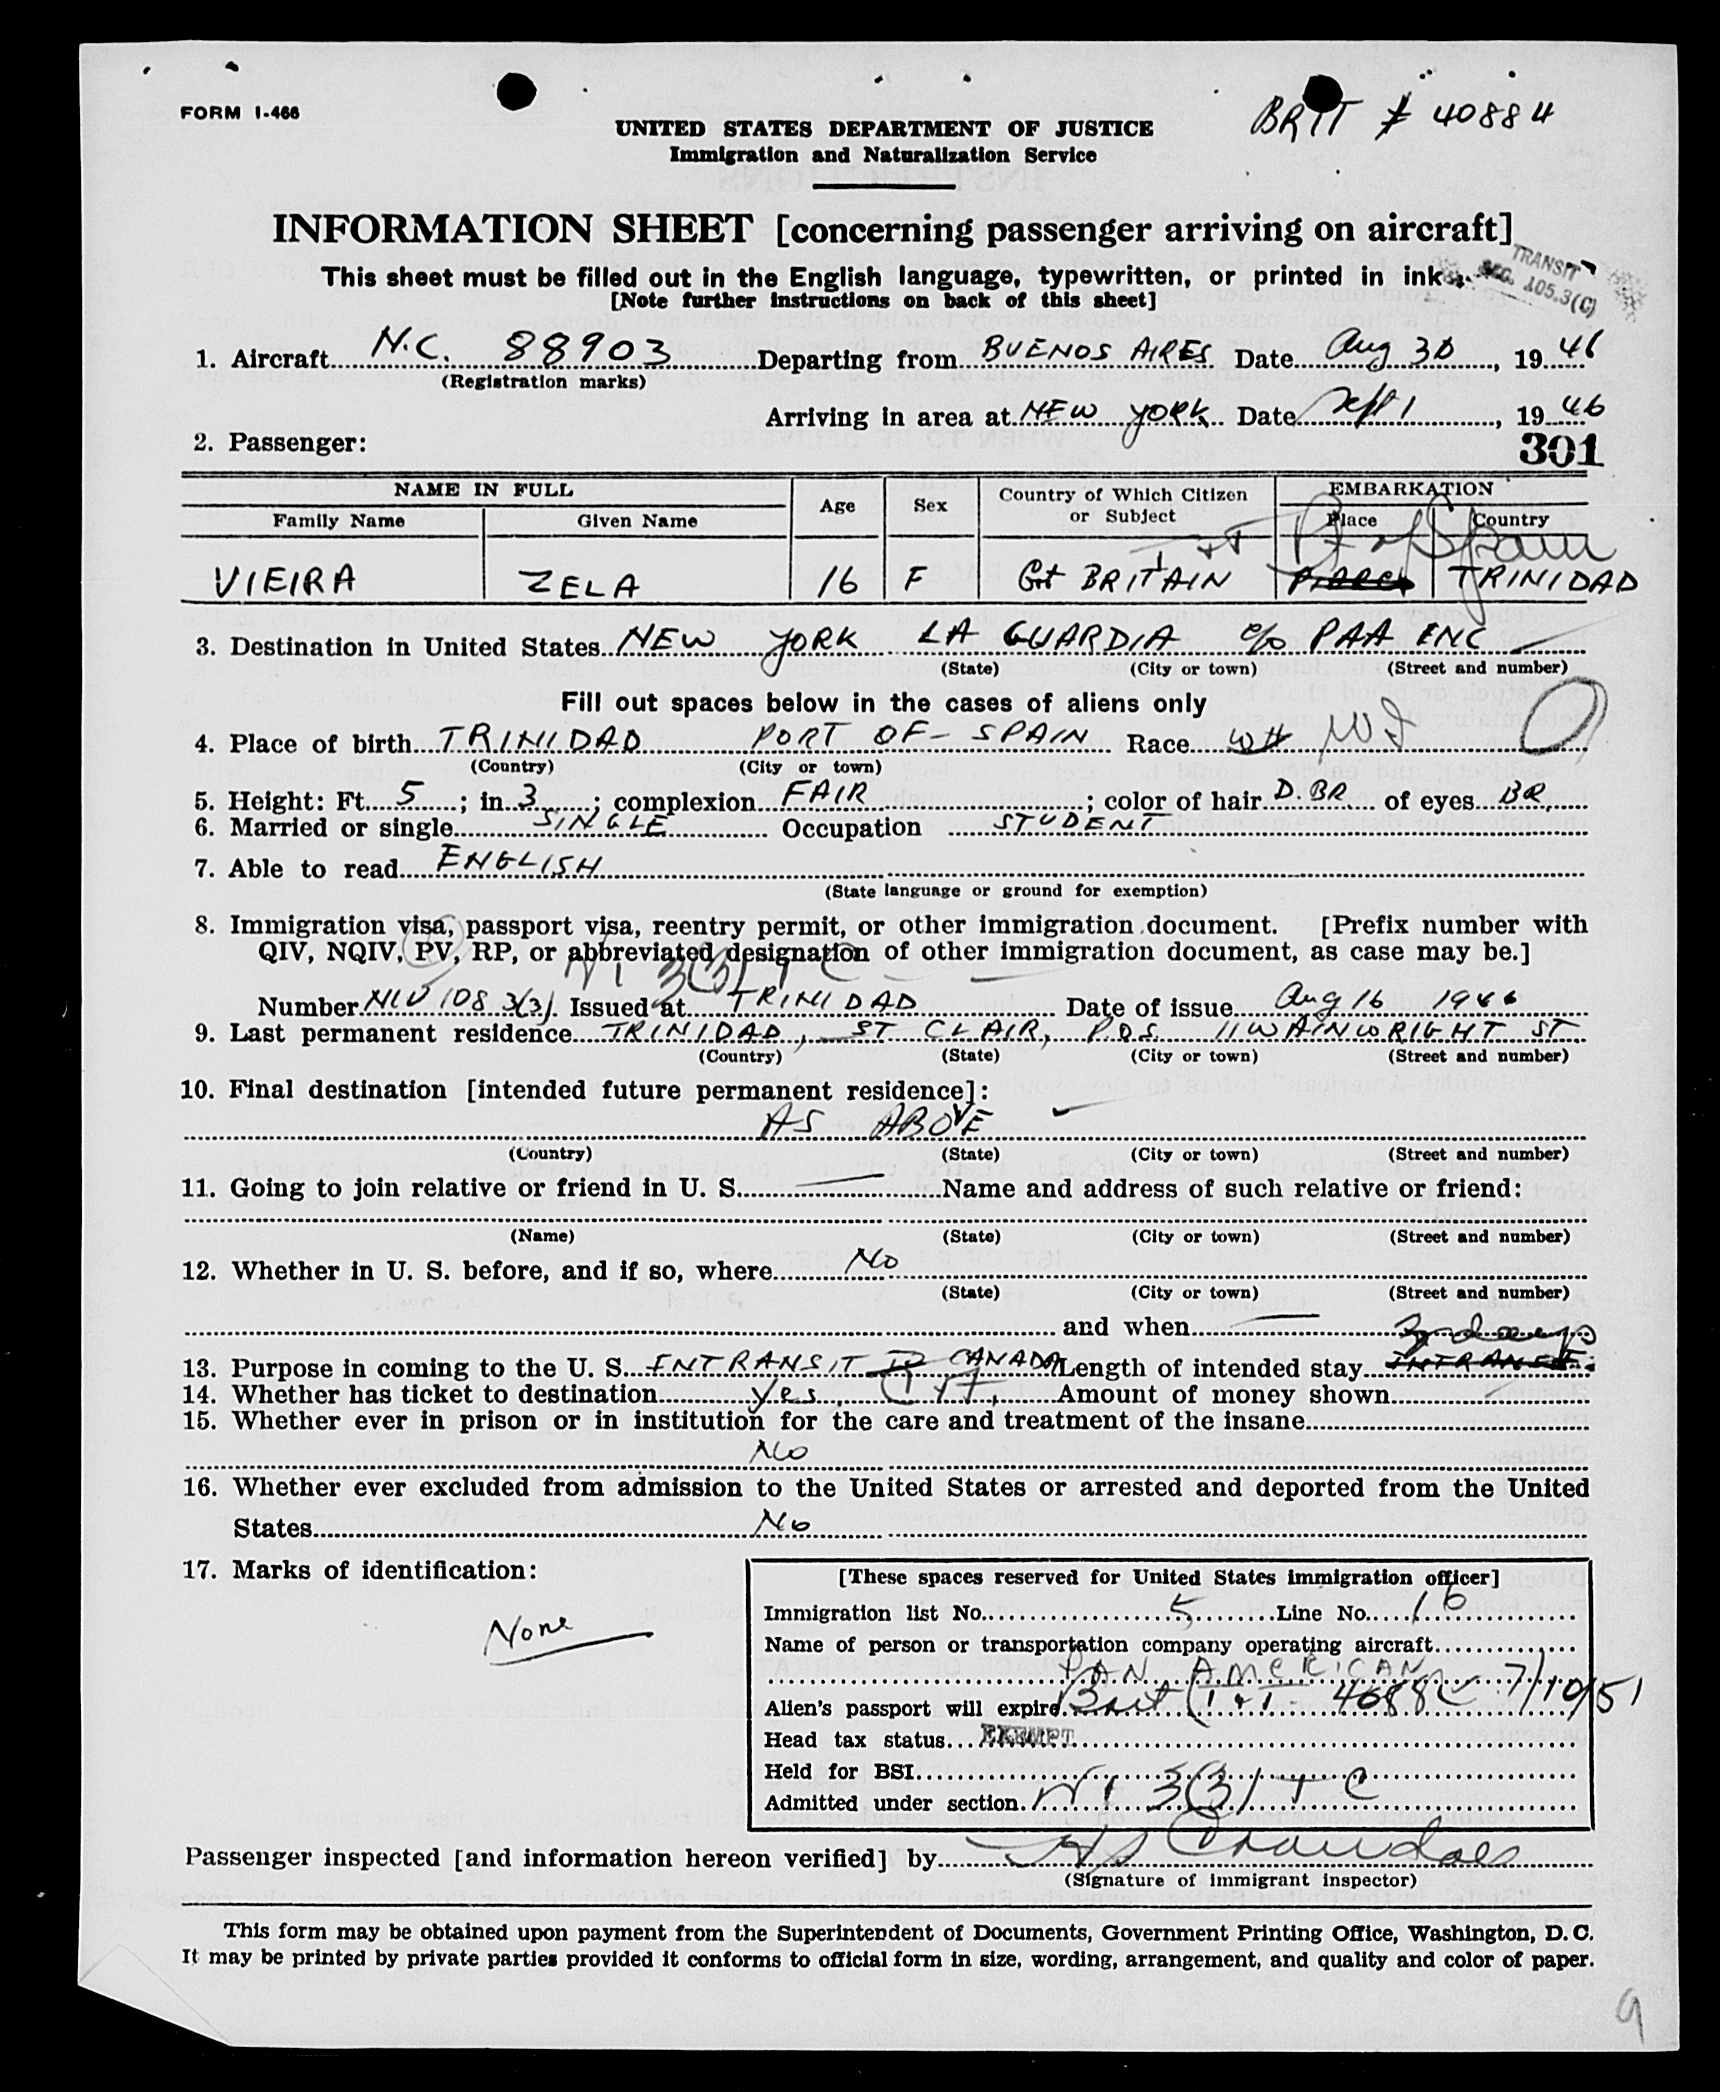 FORM I-466
BRIT # 40884
UNITED STATES DEPARTMENT OF JUSTICE
Immigration and Naturalization Service
INFORMATION SHEET [concerning passenger arriving on aircraft]
This sheet must be filled out in the English language, typewritten, or printed in ink.
TRANSIT
SEC. 105.3(C)
[Note further instructions on back of this sheet]
1. Aircraft N.C. 88903 Departing from BUENOS AIRES Date Aug 30, 1946
(Registration marks)
Arriving in area at NEW YORK Date Sept 1, 1946
2. Passenger:
301
NAME IN FULL Age Sex Country of Which Citizen or Subject EMBARKATION
Family Name Given Name Place Country
Pt of Spain
VIEIRA ZELA 16 F Gt BRITAIN PIARCO TRINIDAD
3. Destination in United States NEW YORK LA GUARDIA c/o PAA INC
(State) (City or town) (Street and number)
Fill out spaces below in the cases of aliens only
4. Place of birth TRINIDAD PORT OF-SPAIN Race WH WI
(Country) (City or town)
5. Height: Ft. 5; in. 3; complexion FAIR; color of hair D. BR. of eyes BR.
6. Married or single SINGLE Occupation STUDENT
7. Able to read ENGLISH
(State language or ground for exemption)
8. Immigration visa, passport visa, reentry permit, or other immigration document. [Prefix number with
QIV, NQIV, PV, RP, or abbreviated designation of other immigration document, as case may be.]
NI 3(3) + C
Number NIV 108 3(3) Issued at TRINIDAD Date of issue Aug 16 1946
9. Last permanent residence TRINIDAD, ST CLAIR, P.O.S. 11 WAINWRIGHT ST
(Country) (State) (City or town) (Street and number)
10. Final destination [intended future permanent residence]:
AS ABOVE
(Country) (State) (City or town) (Street and number)
11. Going to join relative or friend in U. S. Name and address of such relative or friend:
(Name) (State) (City or town) (Street and number)
12. Whether in U. S. before, and if so, where No
(State) (City or town) (Street and number)
and when
3 days
13. Purpose in coming to the U. S. INTRANSIT TO CANADA Length of intended stay INTRANSIT
14. Whether has ticket to destination Yes Amount of money shown
15. Whether ever in prison or in institution for the care and treatment of the insane
No
16. Whether ever excluded from admission to the United States or arrested and deported from the United
States No
17. Marks of identification:
None
[These spaces reserved for United States immigration officer]
Immigration list No. 5 Line No. 16
Name of person or transportation company operating aircraft
PAN AMERICAN
Alien's passport will expire Brit 7/10/51
Head tax status EXEMPT
Held for BSI
Admitted under section NI 3(3) + C
Passenger inspected [and information hereon verified] by
(Signature of immigrant inspector)
This form may be obtained upon payment from the Superintendent of Documents, Government Printing Office, Washington, D. C.
It may be printed by private parties provided it conforms to official form in size, wording, arrangement, and quality and color of paper.
9